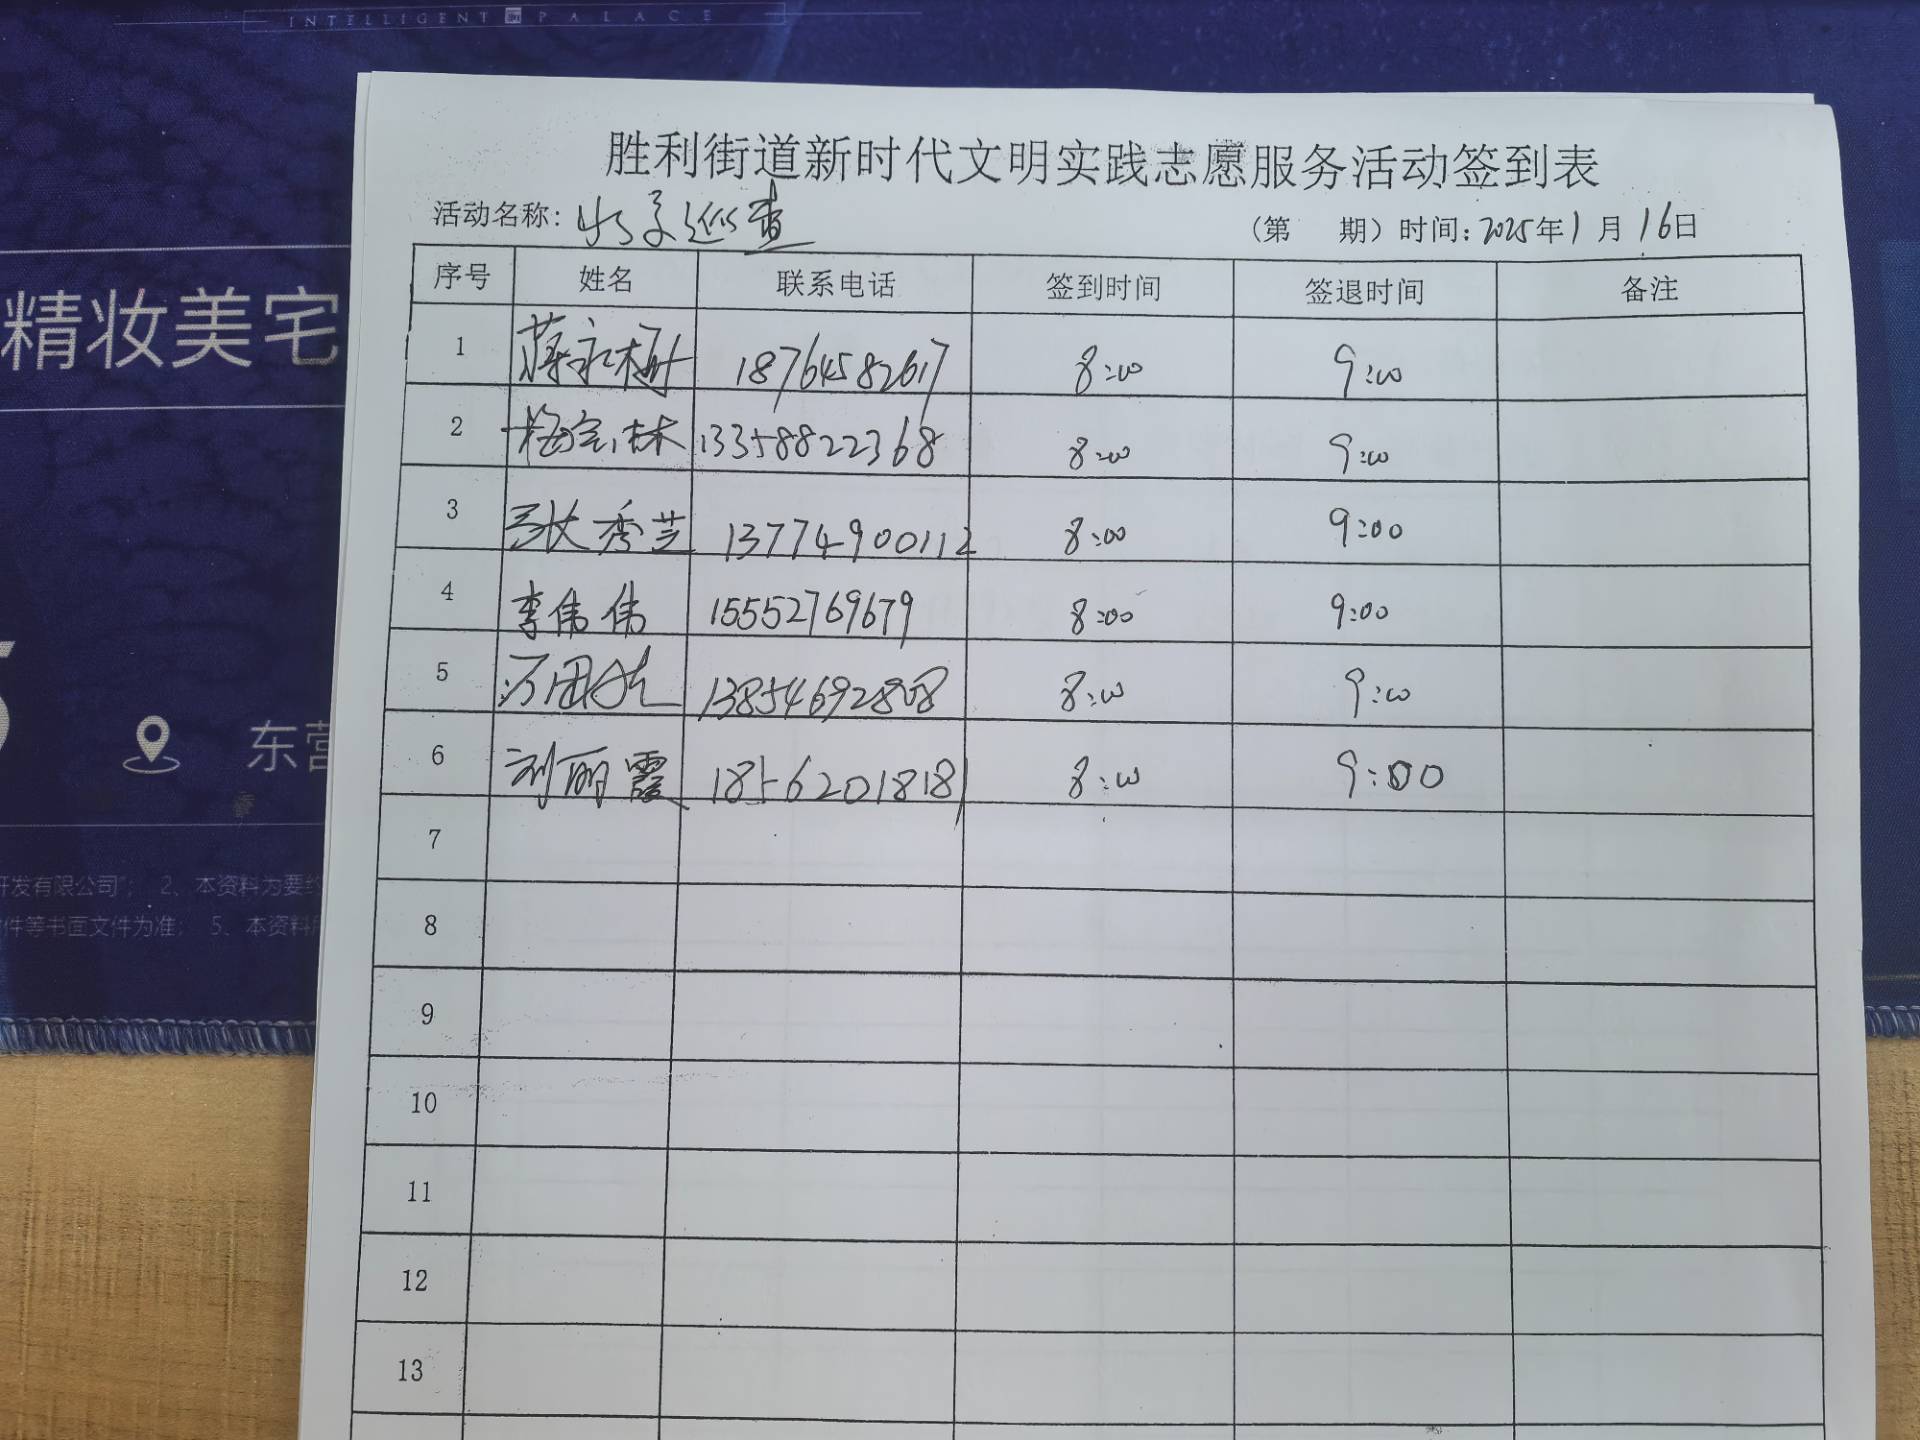 INTELLIGENT PALACE
胜利街道新时代文明实践志愿服务活动签到表
活动名称: 巡查
(第 期) 时间: 2025年1月16日
序号 姓名 联系电话 签到时间 签退时间 备注
1 蒋永梅 18764582617 8:00 9:00
2 梅宝林 13358822368 8:00 9:00
3 张秀芝 13774900112 8:00 9:00
4 李伟伟 15552769679 8:00 9:00
5 13854692808 8:00 9:00
6 刘丽霞 18562018181 8:00 9:00
7
8
9
10
11
12
13
精妆美宅
东营
开发有限公司”; 2、本资料为要约
件等书面文件为准; 5、本资料